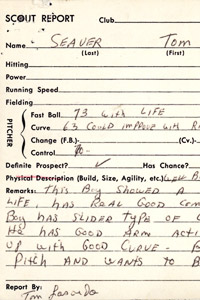 SCOUT REPORT Club
Name SEAVER Tom
(Last) (First)
Hitting
Power
Running Speed
Fielding
PITCHER
Fast Ball 73 with LIFE
Curve 63 COULD IMPROVE WITH
Change (F.B.) (Cv.)
Control
Definite Prospect? ✓ Has Chance?
Physical Description (Build, Size, Agility, etc.) WELL B
Remarks: This Boy SHOWED A
LIFE, HAS REAL GOOD COM
BOY HAS SLIDER TYPE OF C
HE HAS GOOD ARM ACTI
UP WITH GOOD CURVE - B
PITCH AND WANTS TO B
Report By:
Tom Lasorda